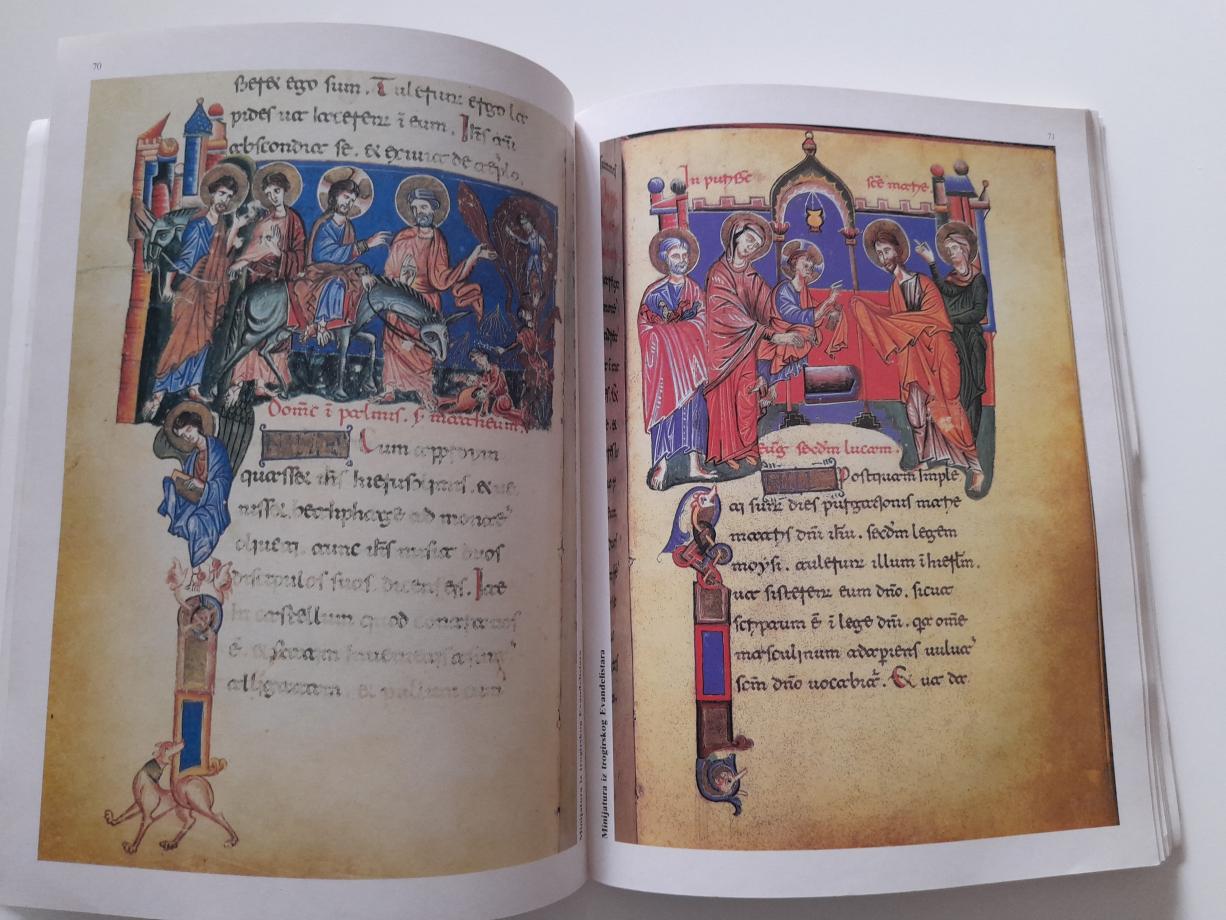 70
setis ego sum. Tulerunt ergo la
pides ut iacerent ī eum. Ihs aū
abscondit se. & exivit de tēplo.
Domc̄ ī palmis. s̄ mattheum.
Cum appropin
quasset ihs hierosolimis. & ve
nisset bethphage ad monte
oliveti. tunc ihs misit duos
discipulos suos dicens eis. Ite
in castellum quod contra vos
ē. & statim invenietis asinā
alligatam. & pullum cum
Minijatura iz trogirskog Evanđelistara
71
In purif
scē marie
evḡ scdm lucam.
Postquam imple
ti sunt dies purgationis marie
matris dni ihu. scdm legem
moysi. tulerunt illum ī hierlm.
ut sisterent eum dno. sicut
scriptum ē ī lege dni. qa ome
masculinum adaperiens vulvā
scm dno vocabit. Et ut da
Minijatura iz trogirskog Evanđelistara